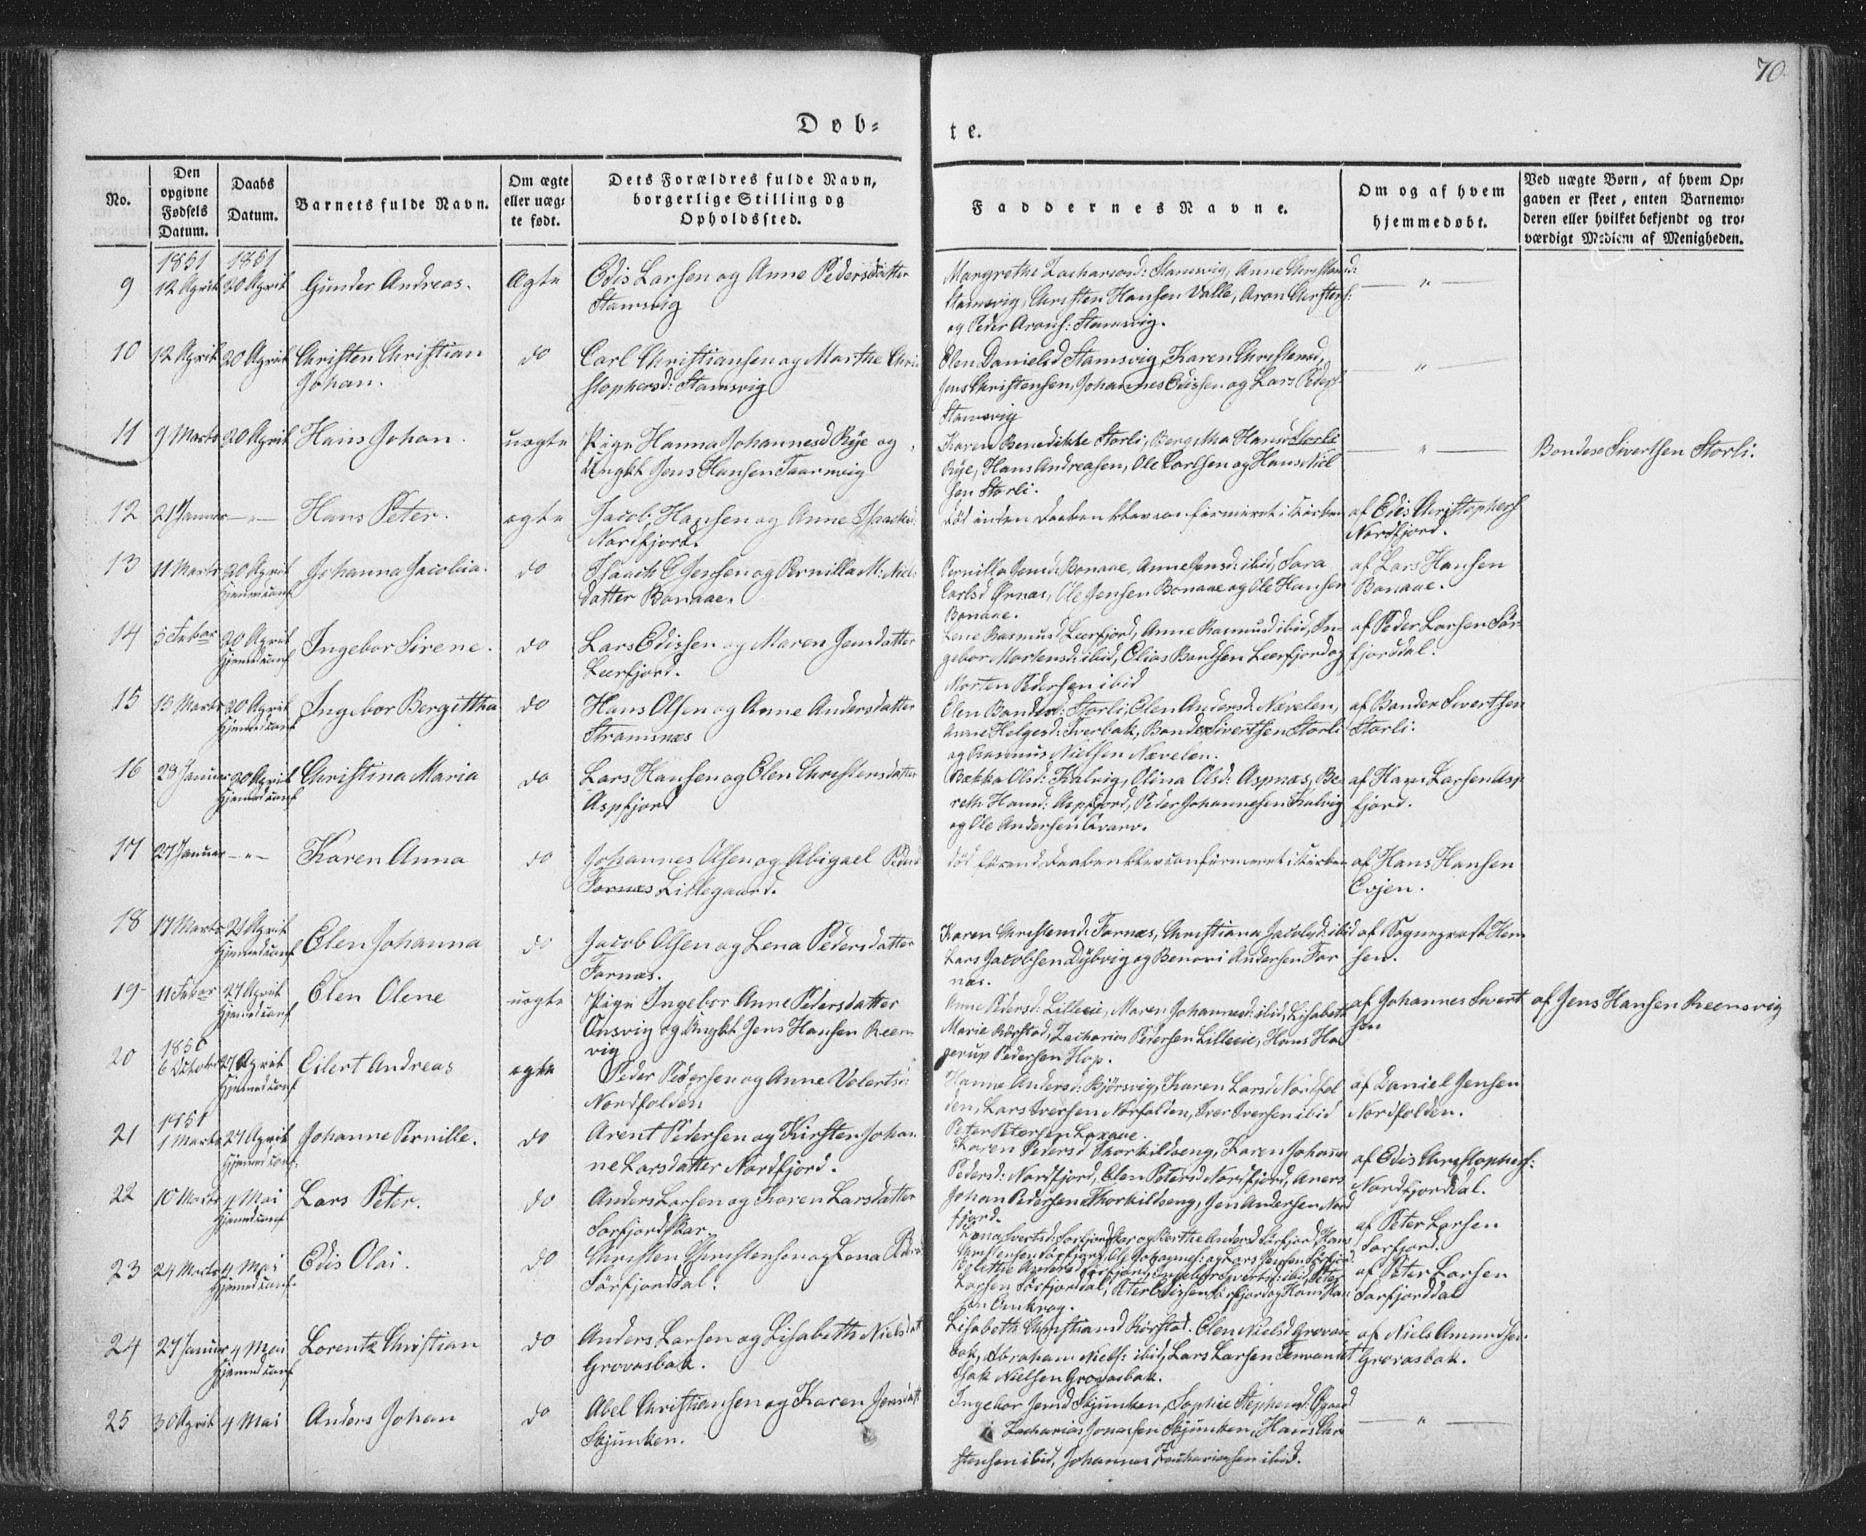 70.
Døb=
te.
No.
Den opgivne Fødsels Datum.
Daabs Datum.
Barnets fulde Navn.
Om ægte eller uæg= te født.
Dets Forældres fulde Navn, borgerlige Stilling og Opholdssted.
Faddernes Navne.
Om og af hvem hjemmedøbt.
Ved uægte Børn, af hvem Op= gaven er skeet, enten Barnemo= deren eller hvilket bekjendt og tro= værdigt Medlem af Menigheden.
1851 1851
9 12 April 20 April Gunder Andreas. Ægte Edis Larsen og Anne Pedersdatter
Stamsvig
Stamsvig, Christen Hansen Valle, Aron Christens:
og Peder Arons: Stamsvig.
10 12 April 20 April Christen Christian Johan. do Carl Christiansen og Marthe Chri
stophersd: Stamsvig
Elen Danielsd Stamsvig, Karen Christensd,
Jens Christensen, Johannes Edissen og Lars Peders
Stamsvig
11 9 Marts 20 April Hans Johan. uægte Pige Hanna Johannesd Røe og
Ungkl Jens Hansen
Karen Benedikte Storli, Bergitha Hansd Storli
Hans Andreasen, Ole Carlsen og Hans Nil
sen Storli.
Bonde Sivertsen Storli.
12 21 Januar — " — Hans Peter. ægte Jacob Hansen og Anne Isaacksd
Nordfjord.
død inden Daaben blev confirmeret i Kirken
af Edis Christophers
Nordfjord.
13 11 Marts 20 April Hjemmed: conf Johanna Jacobia. do Isaack E Jensen og Pernilla M: Niels
datter Bonaae.
Pernilla Jensd: Bonaae, Anne Jensd: ibid, Sara
Carlsd Ørnæs, Ole Jensen Bonaae og Ole Hansen
Bonaae.
af Lars Hansen
Bonaae.
14 5 Febor 20 April Hjemmed: conf Ingebor Sirene. do Lars Edissen og Maren Jensdatter
Leerfjord.
Lene Rasmusd Leerfjord, Anne Rasmusd ibid, In
gebor Mortensd: ibid, Elias Bentsen Leerfjord og
Morten Pedersen ibid
af Peder Larsen Sør
fjorddal.
15 13 Marts 20 April Hjemmed: conf Ingebor Bergittha do Hans Olsen og Anne Andersdatter
Stramsnæs
Elen Bondesd: Storli, Elen Andersd. Nævelen,
Anne Helgesd: Tverbak, Bonde Sivertsen Storli
og Rasmus Nielsen Nævelen.
af Bonde Sivertsen
Storli.
16 28 Januar 20 April Hjemmed: conf Christina Maria do Lars Hansen og Elen Christensdatter
Aspfjord
Bækka Olsd: Kalvig, Olina Olsd: Aspnæs, Be
reth Hansd: Aspfjord, Peder Johannesen Kalvig
og Ole Andersen
af Hans Larsen Asp
fjord.
17 27 Januar — " — Karen Anna do Johannes Olsen og Abigael
Fornæs Lillegaard.
død førend Daaben blev confirmeret i Kirken
af Hans Hansen
Evjen.
18 17 Marts 21 April Hjemmed: conf Elen Johanna do Jacob Olsen og Lena Pedersdatter
Fornæs.
Karen Christensd: Fornæs, Christiana Jacobsd: ibid
Lars Jacobsen Dybvig og Benoni Andersen For
næs.
af Sognepræst Hem
sen.
19 11 Febor 27 April Hjemmed: conf Elen Olene uægte Pige Ingebor Anne Pedersdatter
Onsvig og Ungkl Jens Hansen Reens
vig
Anne Pedersd: Lilleeie, Maren Johannesd: ibid, Lisabeth
Marie Rørstad, Zacharias Pedersen Lilleeie, Hans Ha
gerup Pedersen Hop.
af Johannes Sivert
sen
af Jens Hansen Reensvig
1850
20 6 October 27 April Hjemmed: conf Eilert Andreas ægte Peder Pedersen og Anne Volertsd:
Nordfolden
Hanne Andersd: Bjørsvig, Karen Larsd Nordfol
den, Lars Iversen Norfolden, Iver Iversen ibid
af Daniel Jensen
Nordfolden.
1851
21 1 Marts 27 April Hjemmed: conf Johanne Pernille. do Arent Pedersen og Kirsten Johan
ne Larsdatter Nordfjord.
Karen Pedersd Thorkildseng, Karen Johanna
Pedersd: Nordfjord, Elen Petersd Nordfjord, Aners
Johan Pedersen Thorkildseng, Jens Andersen Nord
fjord.
af Edis Christophers:
Nordfjorddal.
22 10 Marts 4 Mai Hjemmed: conf Lars Peter. do Anders Larsen og Karen Larsdatter
Sørfjordskar
af Peter Larsen
Sørfjord.
23 24 Marts 4 Mai Hjemmed: conf Edis Olai. do Christen Christensen og Lena
Sørfjorddal.
af Peter Larsen
Sørfjorddal
24 27 Januar 4 Mai Hjemmed: conf Lorentz Christian do Anders Larsen og Lisabeth Nielsdat
Grovasbak.
Lisabeth Christiansd Rørstad. Elen Nielsd Grovas
bak, Abraham Niels: ibid, Lars Larsen
Isak Nielsen Grovasbak.
af Niels Amundsen
Grovasbak.
25 30 April 4 Mai Anders Johan do Abel Christiansen og Karen Jensdatt
Skjunken.
Ingebor Jensd Skjunken, Sophie Stephensd
Zacharias Jonassen Skjunken, Hans Chr
stensen ibid, Johannes Zachariasen ibid.
— " —